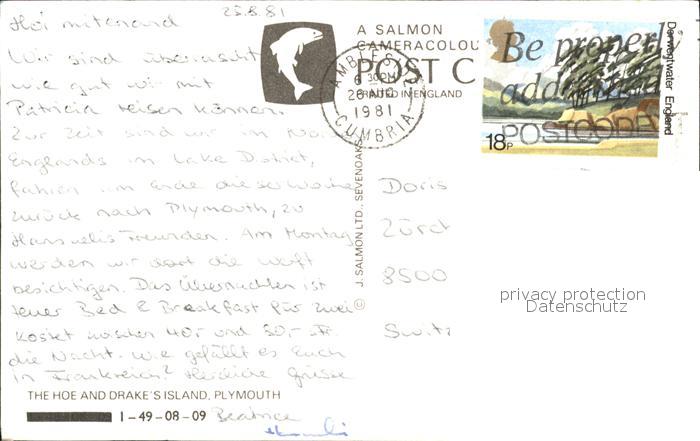 25.8.81
Hoi mitenand
Wir sind überrascht
wie gut wir mit
Patricia reisen können.
Zur Zeit sind wir im
Englands im Lake District,
fahren am Ende dieser Woche
zurück nach Plymouth, zu
Hansuelis Freunden. Am Montag
werden wir dort die Werft
besichtigen. Das Übernachten ist
teuer Bed & Breakfast für zwei
kostet zwischen 40,- und 50,-
die Nacht. Wie gefällt es Euch
in Frankreich? Herzliche Grüsse
THE HOE AND DRAKE'S ISLAND, PLYMOUTH
1-49-08-09 Beatrice
A SALMON
CAMERACOLOU
POST C
PRINTED IN ENGLAND
AMBLESIDE
6 30PM
26 AUG
1981
CUMBRIA
Be properly
addressed
POSTCODE
18P
Derwentwater England
© J. SALMON LTD., SEVENOAKS
Doris
Zürch
8500
Switz
privacy protection
Datenschutz